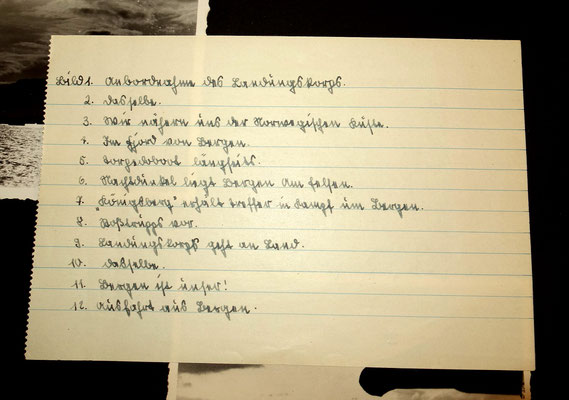 Bild 1. Anbordnahme des Landungskorps.
2. dasselbe.
3. Wir nähern uns der Norwegischen Küste.
4. Im Fjord von Bergen.
5. Torpedoboot längseits.
6. Nachtdunkel liegt Bergen am Felsen.
7. "Königsberg" erhält Treffer in Kampf um Bergen.
8. Stoßtrupps vor.
9. Landungskorps geht an Land.
10. dasselbe.
11. Bergen ist unser!
12. Ausfahrt aus Bergen.